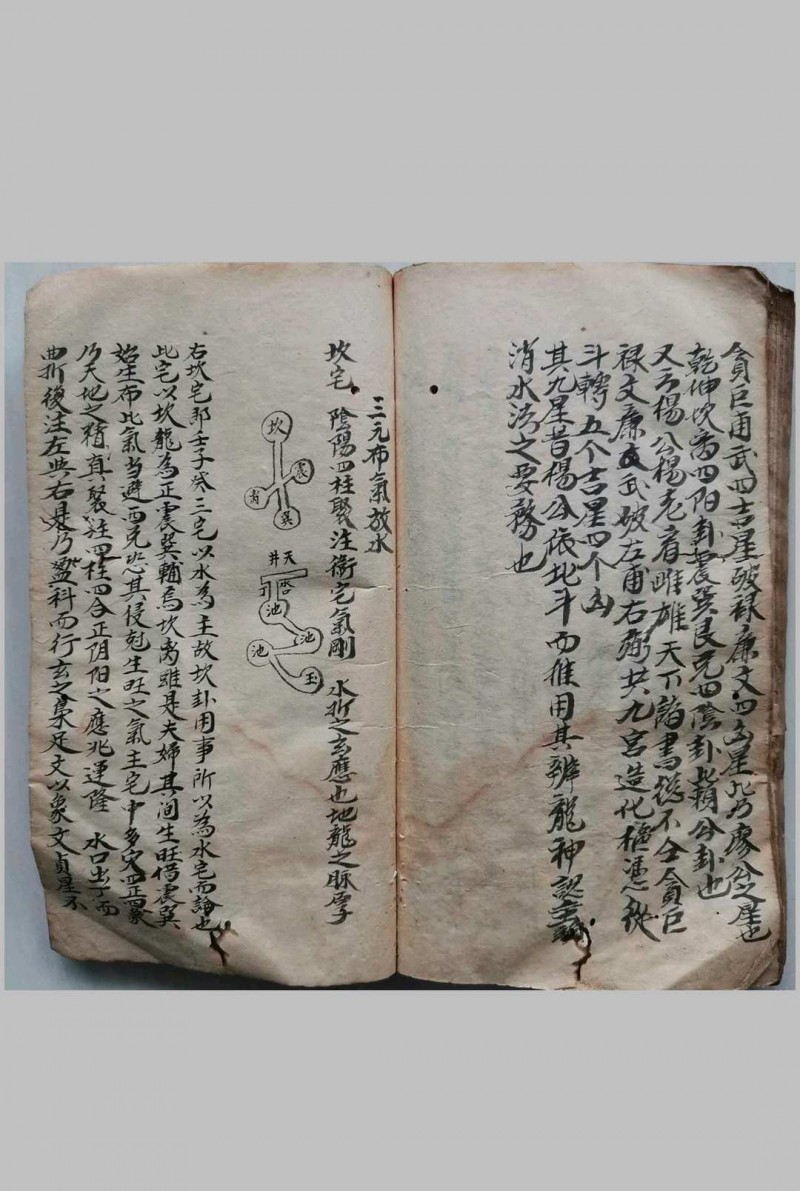 貪巨甫武四吉星破禄廉文四凶星此乃廖公之星也
乾坤坎离四阳卦震巽艮兑四陰卦此頼公卦也
又云楊公楊老看雌雄天下諸書總不仝貪巨
禄文廉武破左甫右弼共九宮造化樞憑從
斗轉五个吉星四个凶
其九星昔楊公依北斗而推用其辨龍神認
消水法之要務也
三元布氣放水
坎宅 陰陽四柱聚注衛宅氣剛 水折之玄應也地龍之脉厚
坎
震
离
巽
天井
池
池
池
玉
右坎宅即壬子癸三宅以水為主故坎卦用事所以為水宅而論也
此宅以坎龍為正震巽輔焉坎离雖是夫婦其间生旺借震巽
始生布比氣当避西兑恐其侵尅生旺之氣主宅中多灾四正四象
乃天地之精真聚注四柱四合正阴阳之應兆運隆 水口出丁而
曲折後注左與右是乃盈科而行玄之象足文以象文貞星不